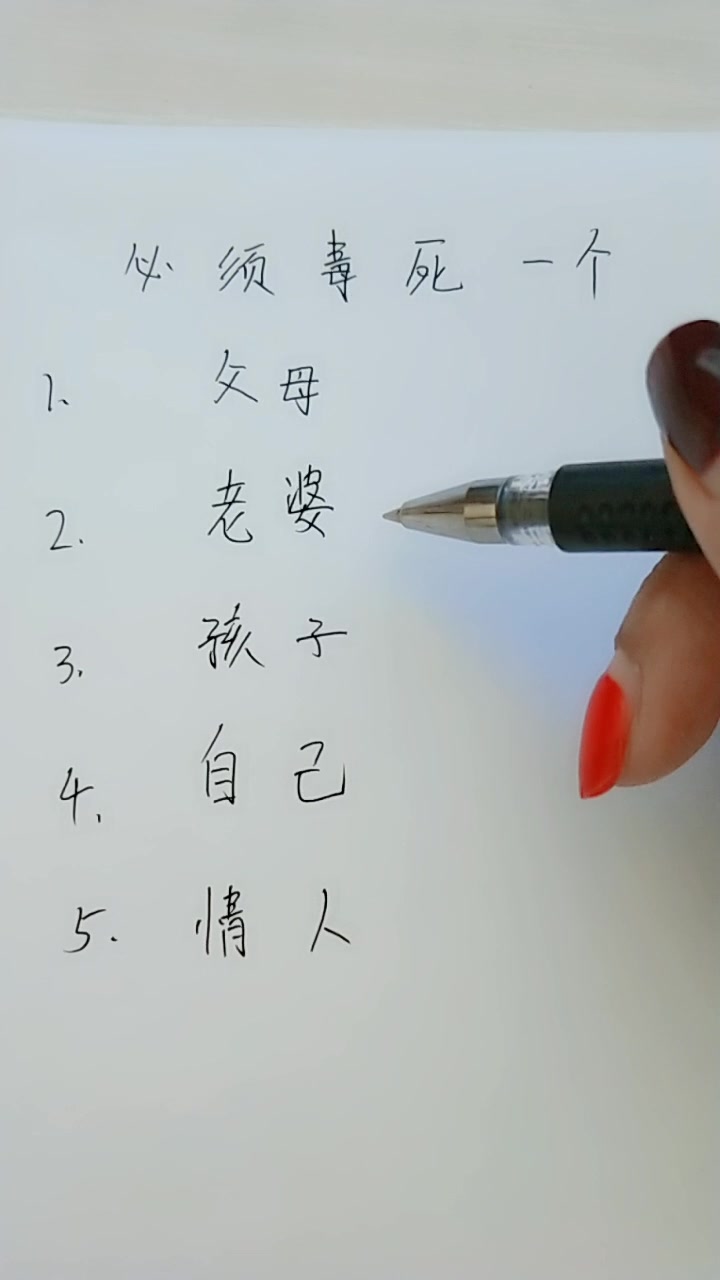 必须毒死一个
1. 父母
2. 老婆
3. 孩子
4. 自己
5. 情人